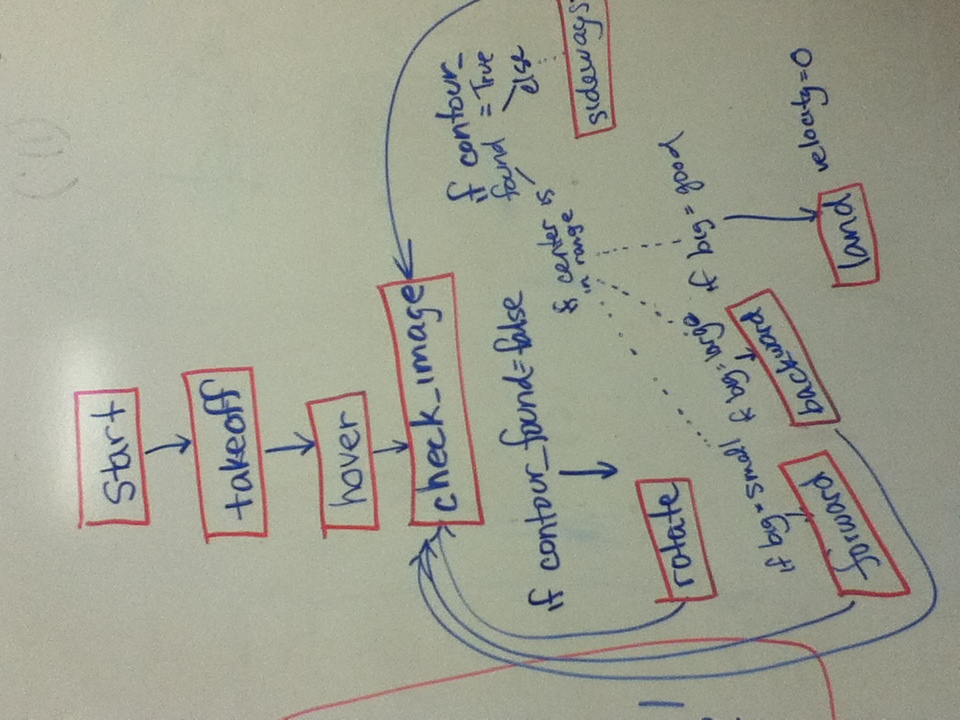 Start
takeoff
hover
check_image
if contour_found=false
rotate
if contour_
found = True
else
sideways
& center is
in range
if big = small
forward
if big = large
backward
if big = good
land
velocity=0